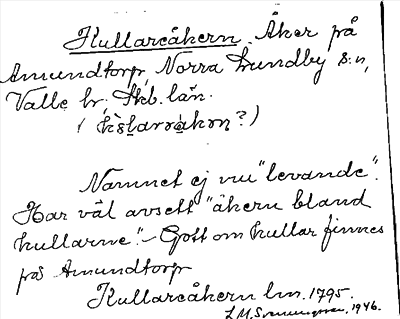 Kullareåkern. Åker på
Amundtorp, Norra Lundby s:n,
Valle hr, Skb. län.
Namnet ej nu "levande".
Har väl avsett "åkern bland
kullarne". - Gott om kullar finnes
på Amundtorp
Kullareåkern lm. 1795.
1946.